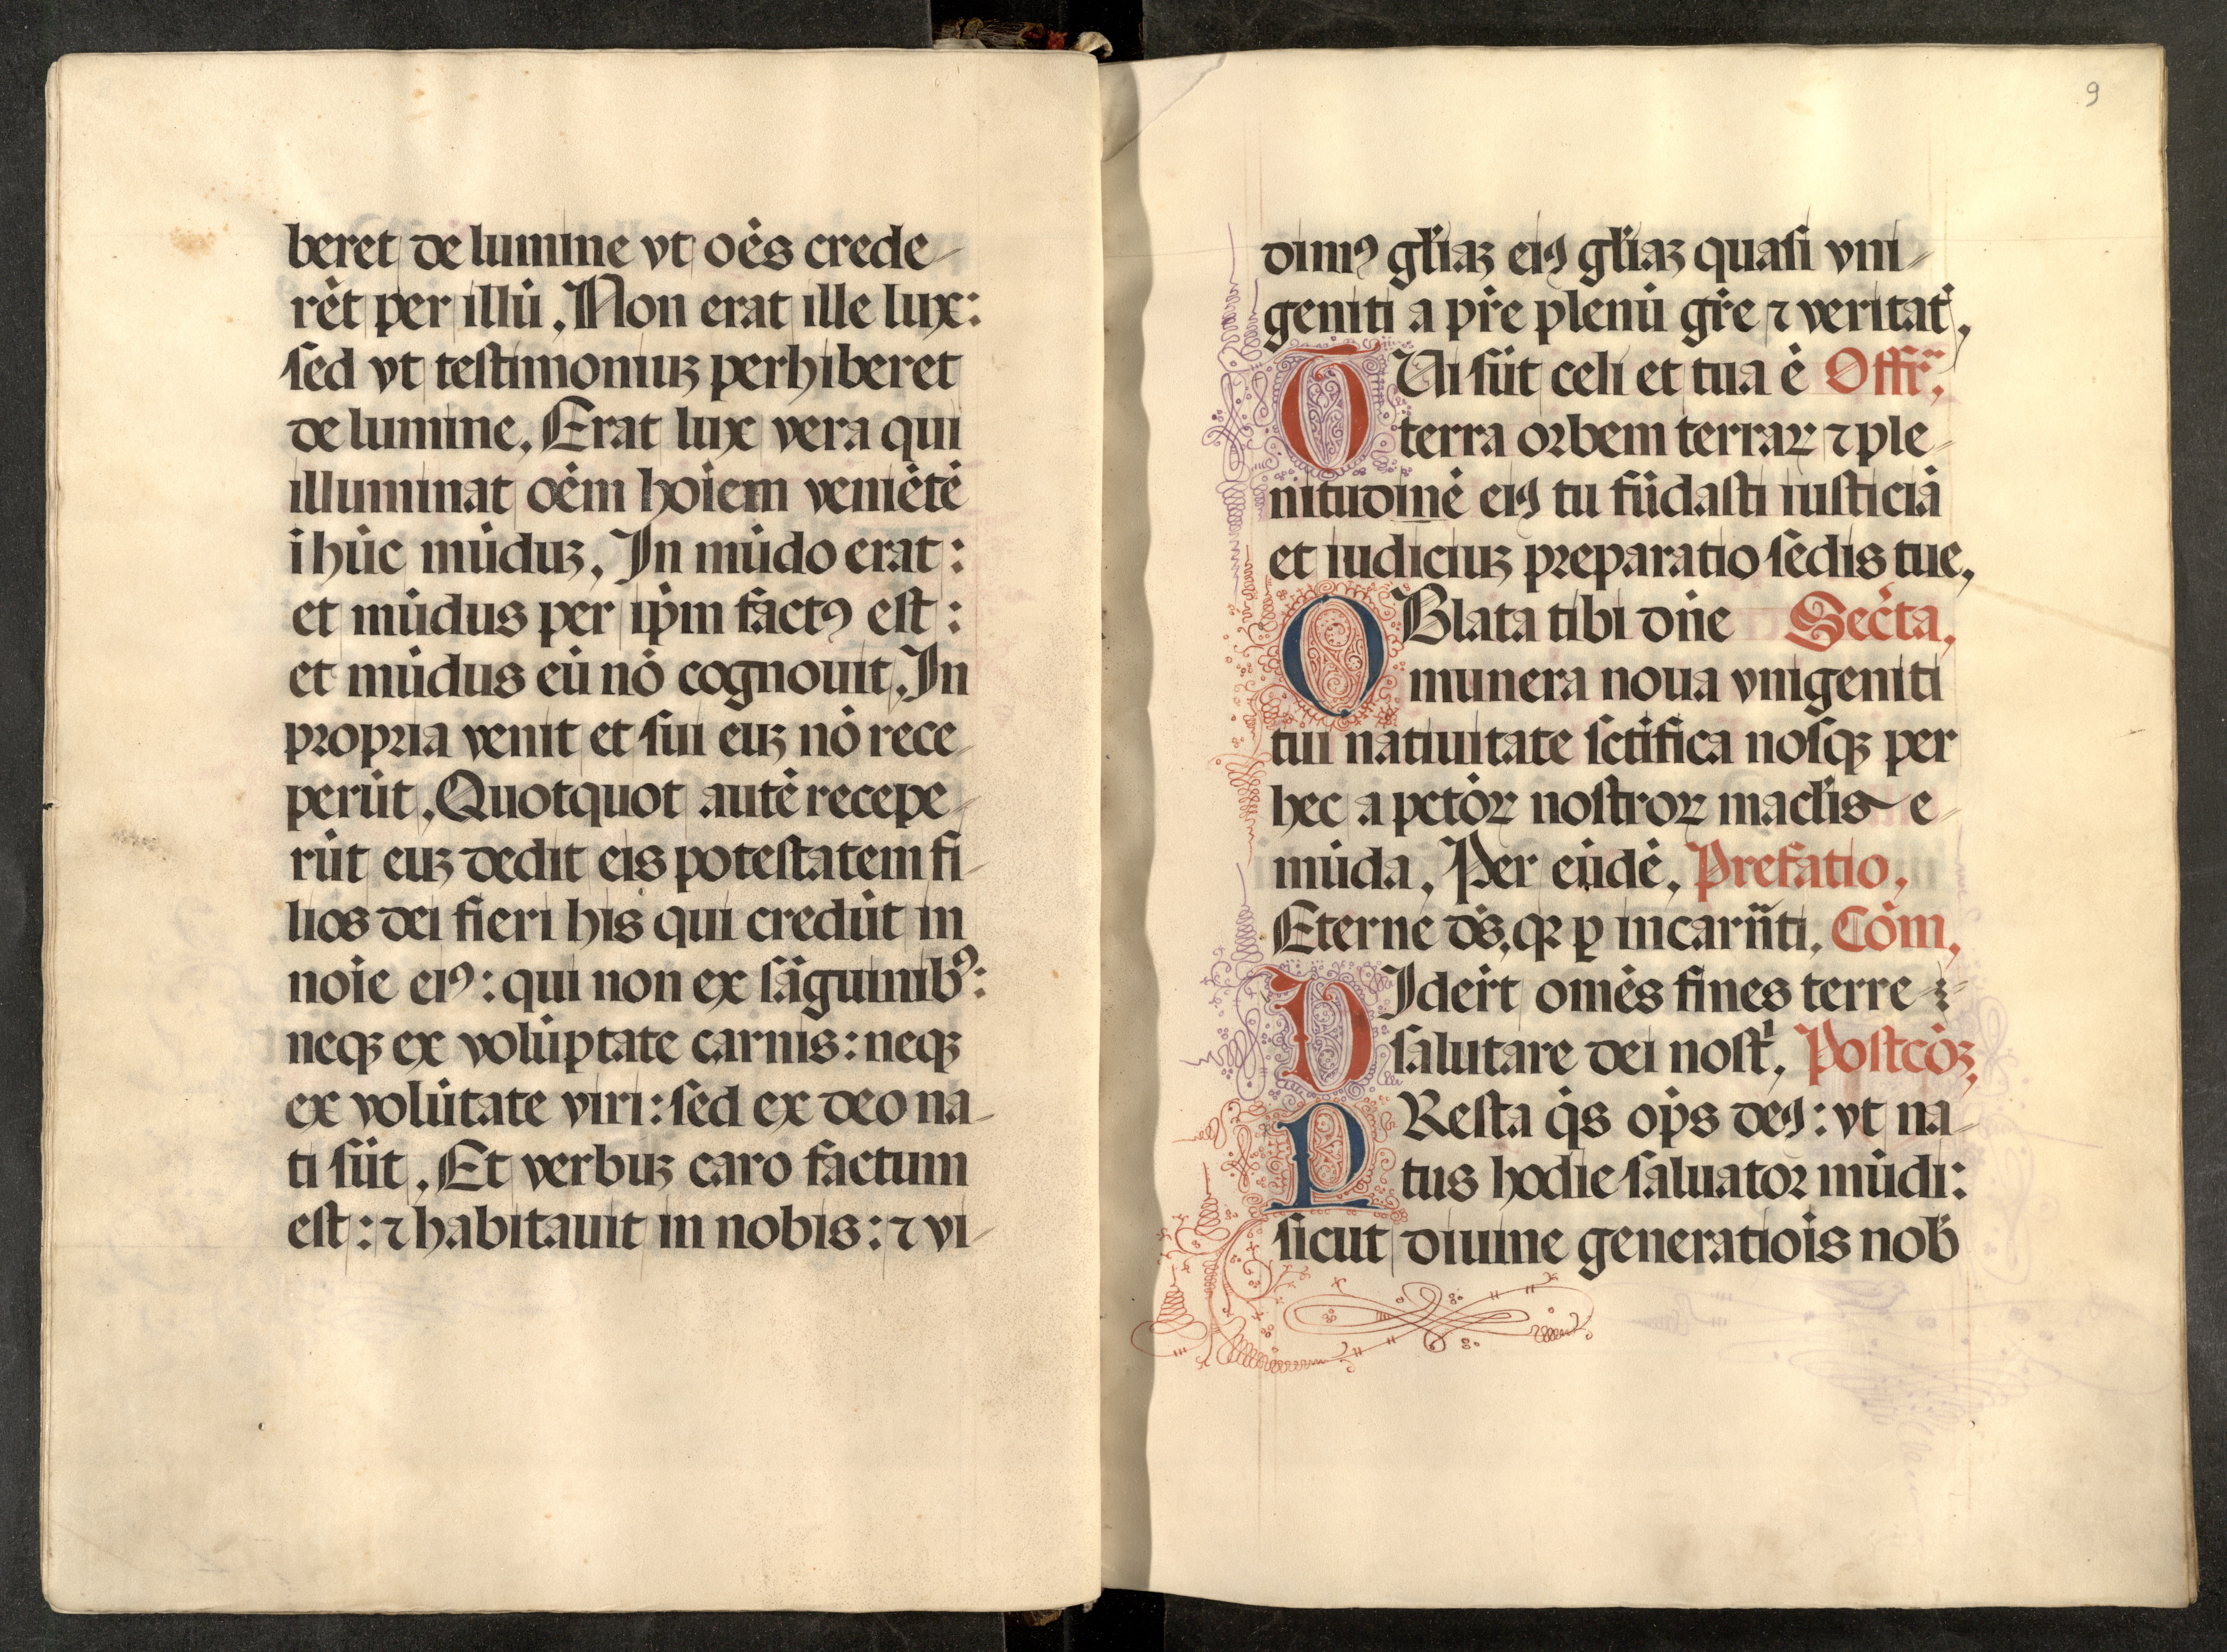 beret de lumine vt oēs crede-
rēt per illū. Non erat ille lux:
sed vt testimoniuꝫ perhiberet
de lumine. Erat lux vera qui
illuminat oēm hoīem veniētē
i hūc mūduꝫ. In mūdo erat:
et mūdus per ip̄m factꝰ est:
et mūdus eū nō cognouit. In
propria venit et sui euꝫ nō rece-
perūt. Quotquot autē recepe-
rūt euꝫ dedit eis potestatem fi-
lios dei fieri his qui credūt in
noīe eiꝰ: qui non ex sāguinibꝰ:
neqꝫ ex volūptate carnis: neqꝫ
ex volūtate viri: sed ex deo na-
ti sūt. Et verbuꝫ caro factum
est: ⁊ habitauit in nobis: ⁊ vi-
9
dimꝰ gl̄iaꝫ eiꝰ gl̄iaꝫ quasi vni-
geniti a pr̄e plenū gr̄e ⁊ veritat̄.
TUi sūt celi et tua ē Offr̄.
terra orbem terraꝝ ⁊ ple-
nitudinē eiꝰ tu fūdasti iusticiā
et iudiciuꝫ preparatio sedis tue.
OBlata tibi dn̄e Secr̄ta.
munera noua vnigeniti
tui natiuitate sc̄tifica nosqꝫ per
hec a pctōꝝ nostroꝝ macl̄is e-
mūda. Per eūdē. Prefatio.
Eterne ds̄. qꝛ ꝑ incarn̄ti. Cōm.
VIder̄t omēs fines terre
salutare dei nostī. Postcōꝫ.
PResta q̄s op̄s deꝰ: vt na-
tus hodie saluator mūdi:
sicut diuine generatiōis nob̄